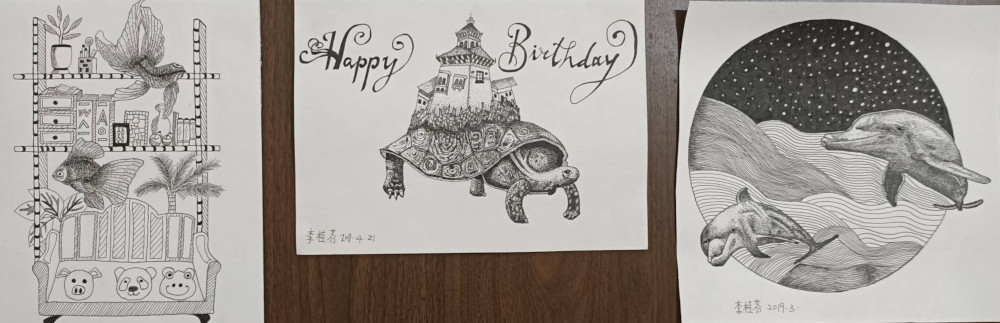 Happy Birthday
李桂芬 2019.4.21
李桂芬 2019.3.